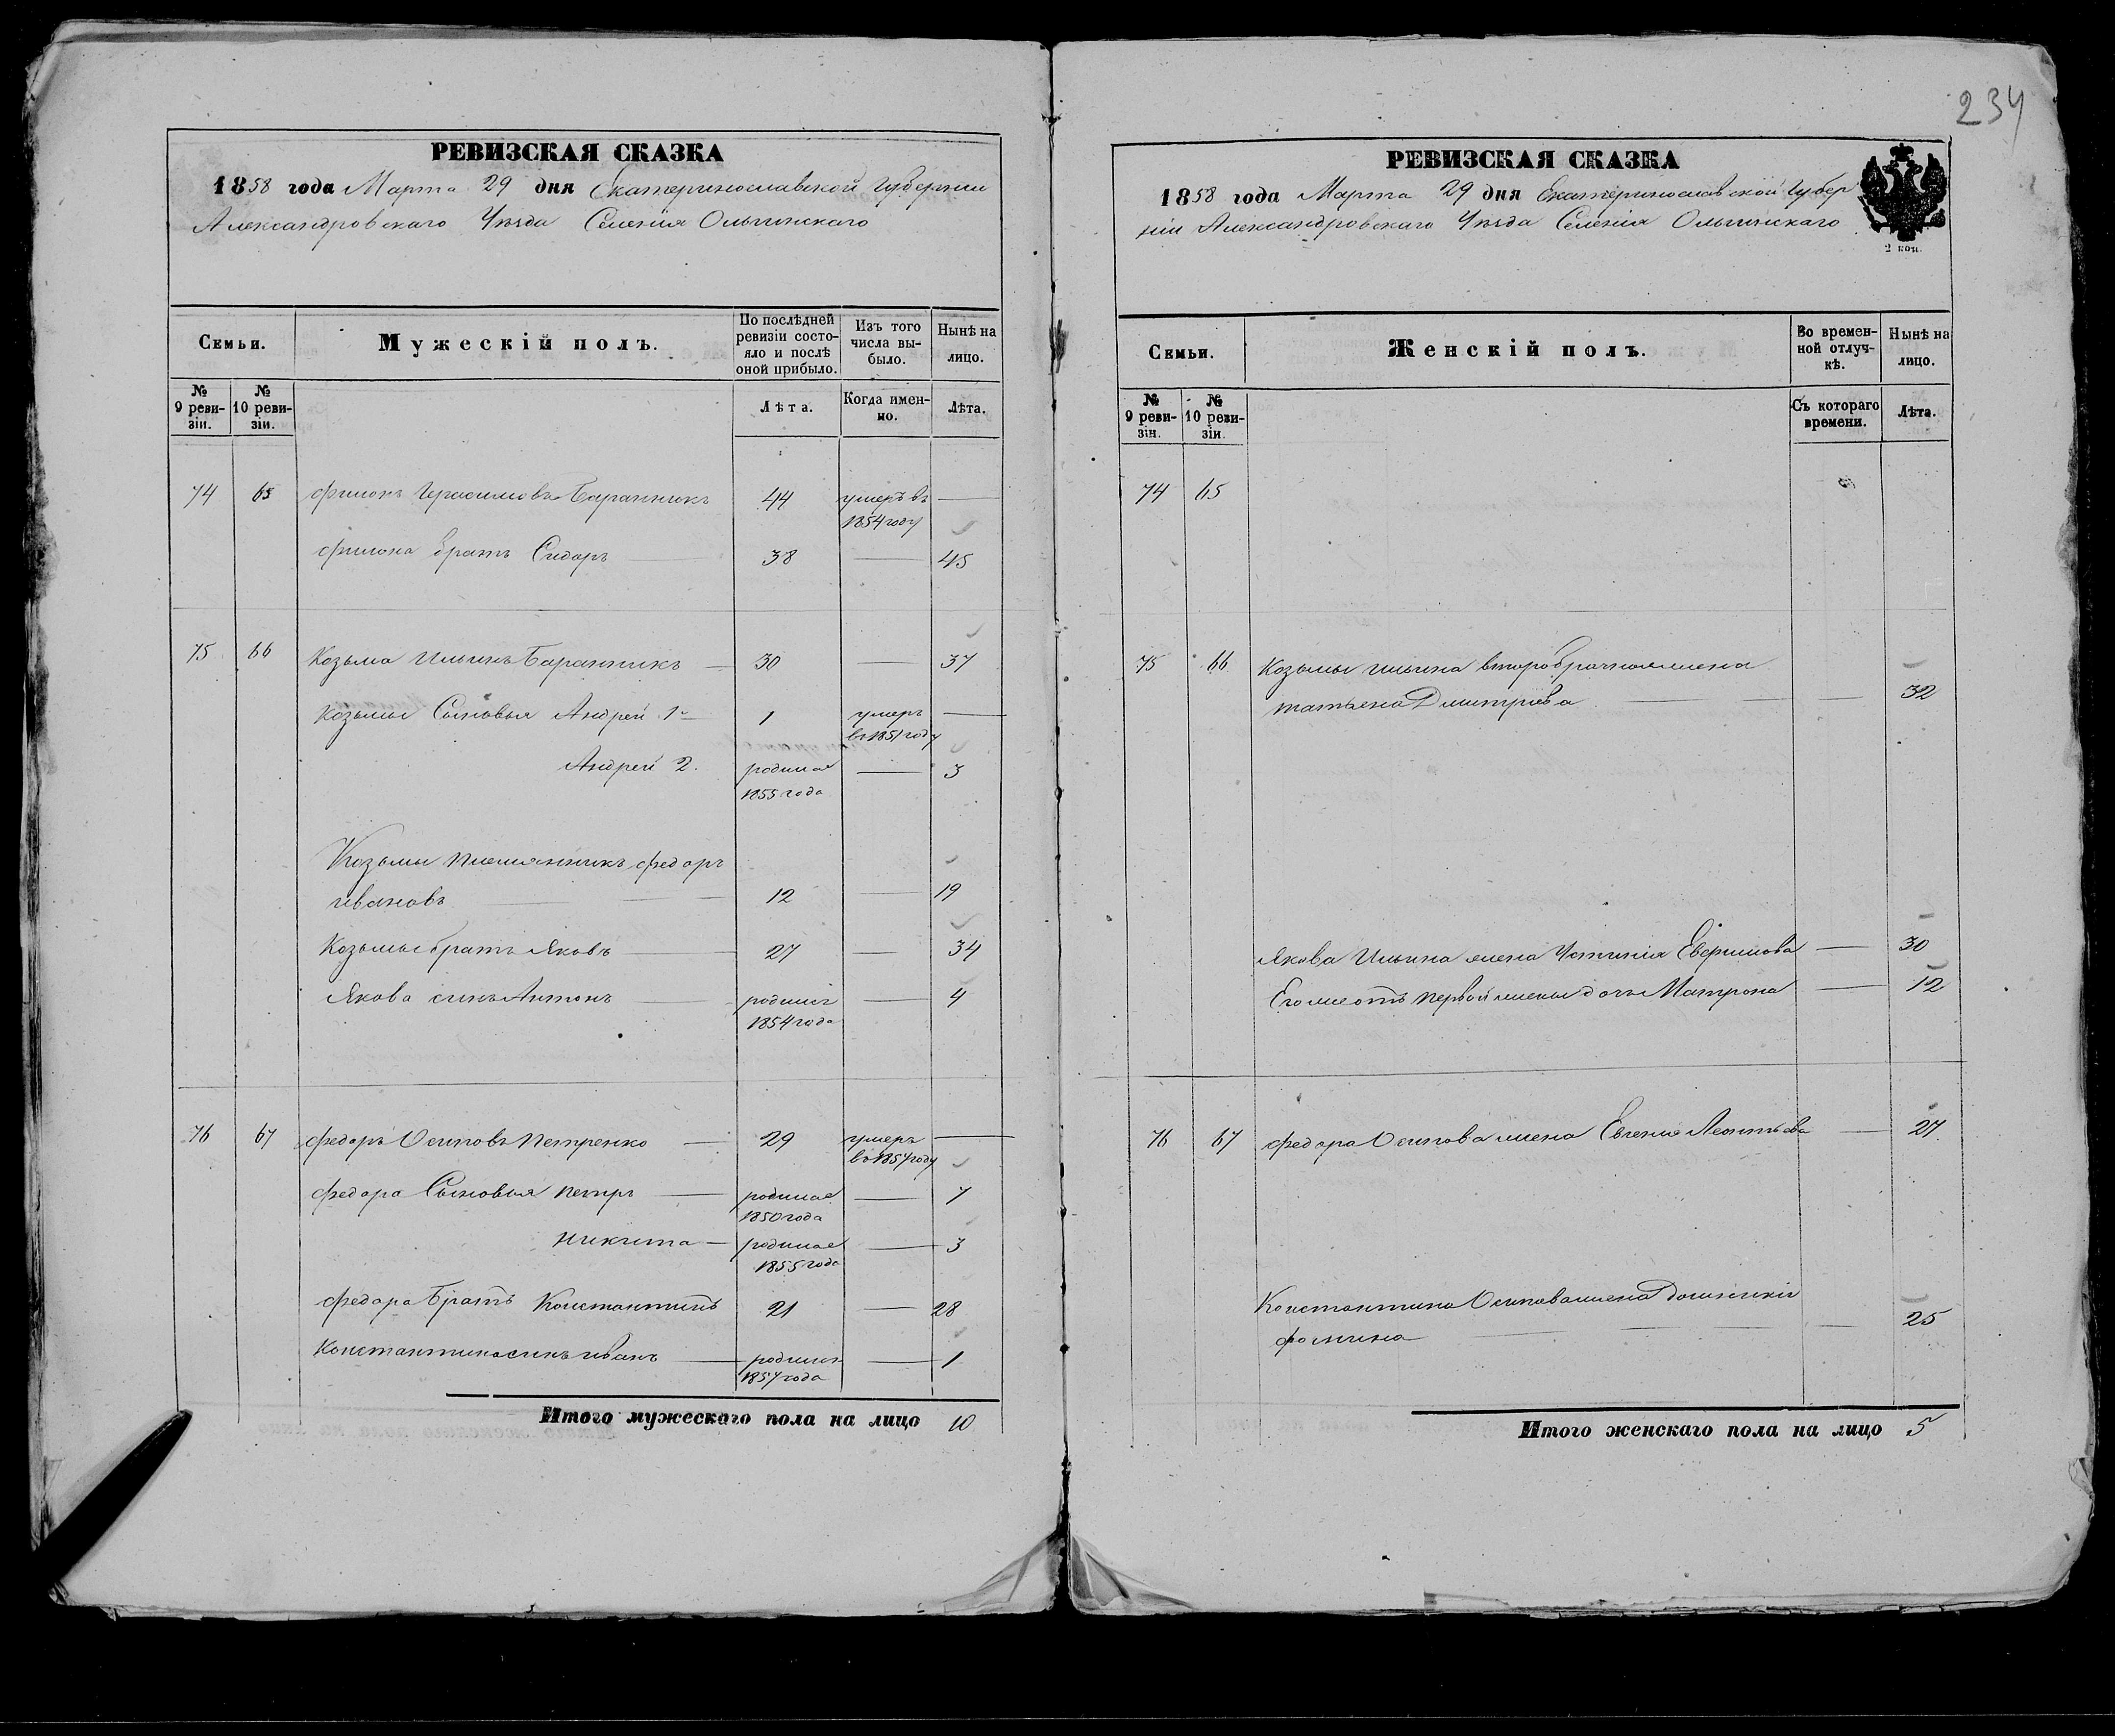 234
РЕВИЗСКАЯ СКАЗКА
1858 года Марта 29 дня Екатеринославской Губернии
Александровскаго Уѣзда Селенія Ольгинскаго
Семьи.
Мужескій полъ.
По послѣдней ревизіи состояло и послѣ оной прибыло.
Изъ того числа выбыло.
Нынѣ на лицо.
№ 9 ревизіи.
№ 10 ревизіи.
Лѣта.
Когда именно.
Лѣта.
74 65 Филонъ Герасимовъ Баранникъ 44 умеръ въ —
1854 году
Филона братъ Сидоръ — 38 — 45
75 66 Козьма Ильинъ Баранникъ — 30 — 37
Козьмы Сыновья Андрей 1й 1 умеръ —
въ 1851 году
Андрей 2. родился — 3
1855 года
Козьмы племянникъ Федоръ
Ивановъ — 12 — 19
Козьмы братъ Яковъ — 27 — 34
Якова сынъ Антонъ — родился — 4
1854 года
76 67 Федоръ Осиповъ Петренко — 29 умеръ —
въ 1857 году
Федора Сыновья Петръ — родился — 7
1850 года
Никита — родился — 3
1855 года
Федора братъ Константинъ 21 — 28
Константина сынъ Иванъ — родился — 1
1857 года
Итого мужескаго пола на лицо 10
РЕВИЗСКАЯ СКАЗКА
1858 года Марта 29 дня Екатеринославской Губер
ніи Александровскаго Уѣзда Селенія Ольгинскаго
2 коп.
Семьи.
Женскій полъ.
Во временной отлучкѣ.
Нынѣ на лицо.
№ 9 ревизіи.
№ 10 ревизіи.
Съ котораго времени.
Лѣта.
74 65
75 66 Козьмы Ильина второбрачная жена
Татьяна Дмитріева — — 32
Якова Ильина жена Устинія Евфимова — 30
Его же отъ первой жены дочь Матрона — 12
76 67 Федора Осипова жена Евгенія Леонтьева — 27
Константина Осипова жена Домникія
Фомина — — 25
Итого женскаго пола на лицо 5